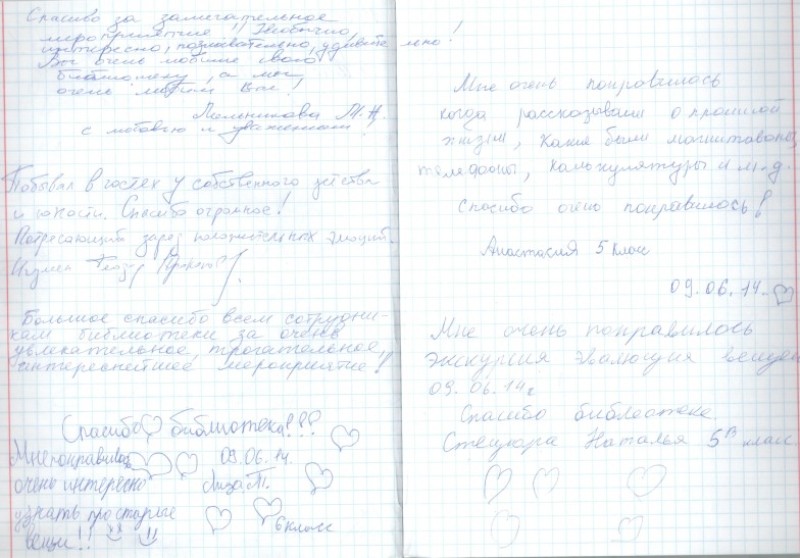 Спасибо за замечательное
мероприятие!! Необычно,
интересно, познавательно, удивительно!
Вы очень любите свою
библиотеку, а мы
очень любим Вас!
Мельникова М.Н.
с любовью и уважением!
Побывал в гостях у собственного детства
и юности. Спасибо огромное!
Потресающий заряд положительных эмоций.
Большое спасибо всем сотрудни-
кам библиотеки за очень
увлекательное, трогательное,
интереснейшее мероприятие!
Спасибо библиотека!!!
Мне понравилось 09.06.14.
очень интересно Лиза Т.
узнать про старые
вещи!! 6 класс
Мне очень понравилось
когда рассказывали о прошлой
жизни, какие были магнитафоны,
телефоны, калькулятуры и т.д.
Спасибо очень понравилось!
Анастасия 5 класс
09.06.14.
Мне очень понравилось
экскурсия эвалюция вещей
09.06.14г
Спасибо библеотеке.
Стецюра Наталья 5В класс